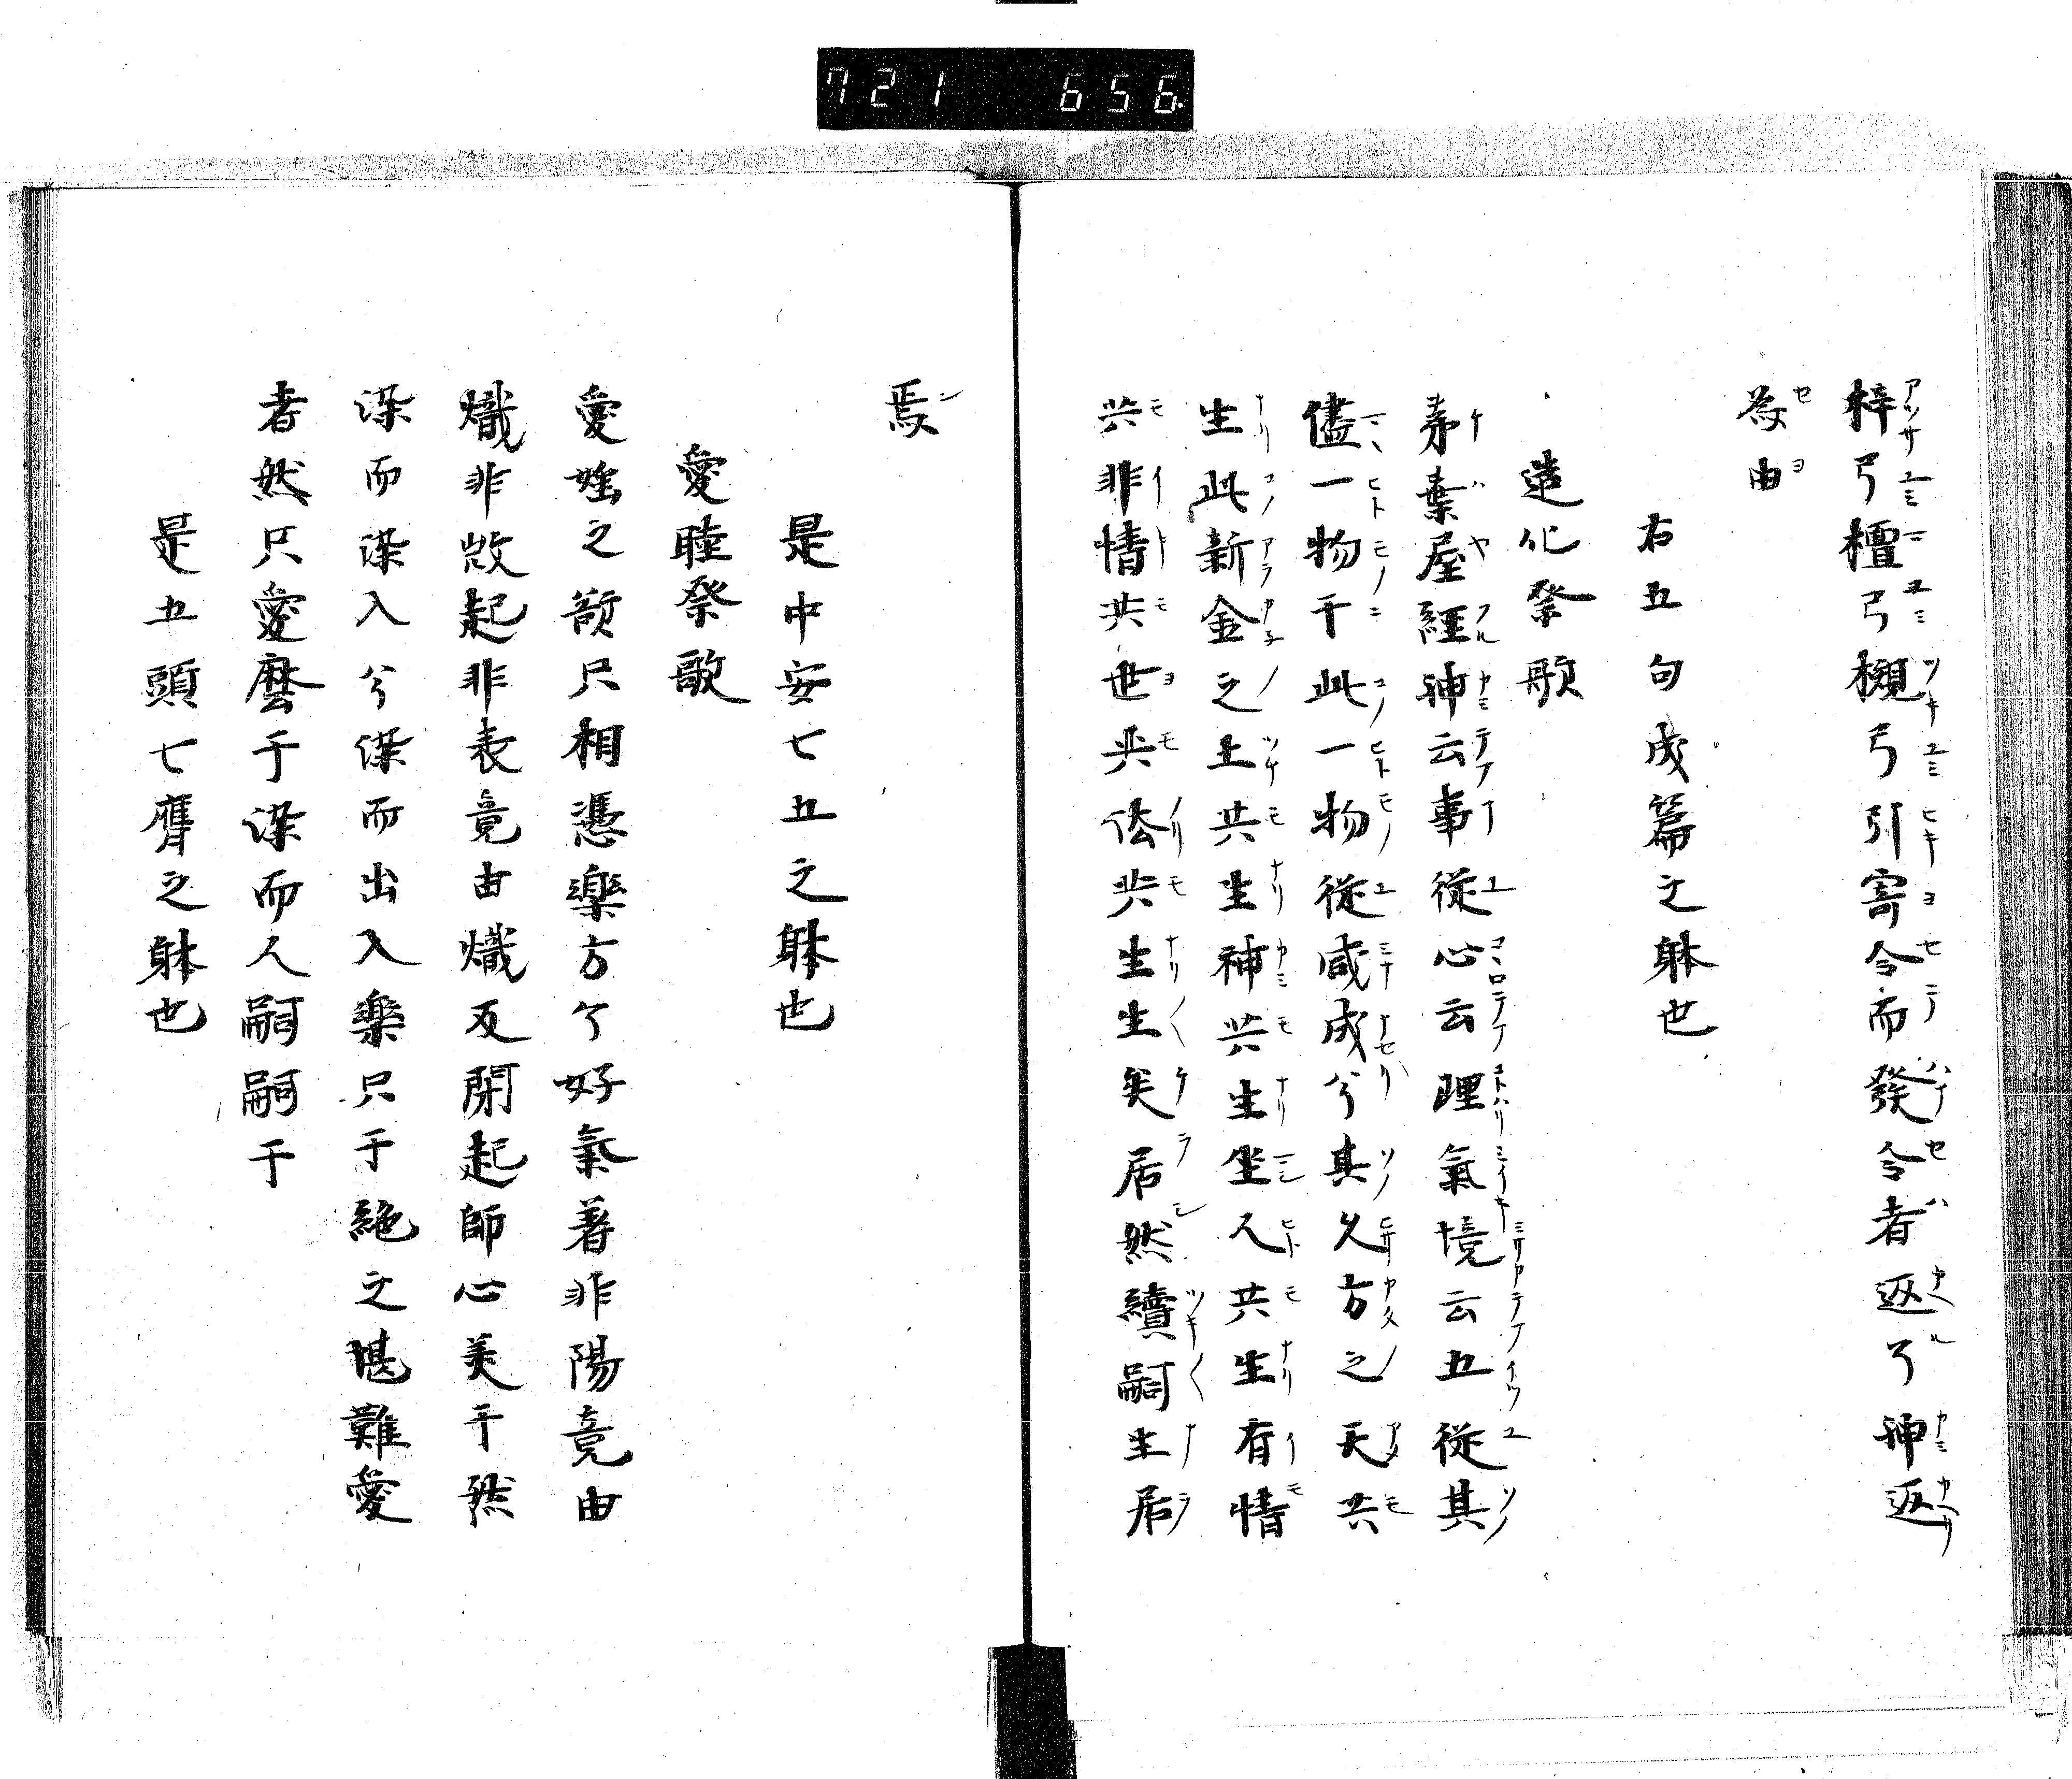 721 656
梓弓檀弓槻弓引寄令而發令者返了神返
為由
右五句成篇之躰也
造化祭歌
茅葉屋經神云事従心云理氣境云五従其
儘一物于此一物従咸成兮其久方之天共
生此新金之土共生神共生坐人共生有情
共非情共世共㳒共生生矣居然續嗣生居
焉
是中安七五之躰也
愛睦祭歌
愛婬之欲只相憑樂方兮好氣著非陽竟由
熾非啟起非表竟由熾反閉起師心美于然
深而染入兮染而出入樂只于絶之堪難愛
者然只愛麼于染而人嗣嗣于
是五頭七膺之躰也